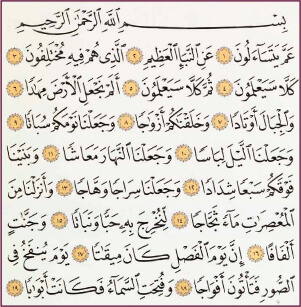 بِسْمِ ٱللَّهِ ٱلرَّحْمَٰنِ ٱلرَّحِيمِ
عَمَّ يَتَسَآءَلُونَ ١ عَنِ ٱلنَّبَإِ ٱلْعَظِيمِ ٢ ٱلَّذِى هُمْ فِيهِ مُخْتَلِفُونَ ٣
كَلَّا سَيَعْلَمُونَ ٤ ثُمَّ كَلَّا سَيَعْلَمُونَ ٥ أَلَمْ نَجْعَلِ ٱلْأَرْضَ مِهَٰدًا ٦
وَٱلْجِبَالَ أَوْتَادًا ٧ وَخَلَقْنَٰكُمْ أَزْوَٰجًا ٨ وَجَعَلْنَا نَوْمَكُمْ سُبَاتًا ٩
وَجَعَلْنَا ٱلَّيْلَ لِبَاسًا ١٠ وَجَعَلْنَا ٱلنَّهَارَ مَعَاشًا ١١ وَبَنَيْنَا
فَوْقَكُمْ سَبْعًا شِدَادًا ١٢ وَجَعَلْنَا سِرَاجًا وَهَّاجًا ١٣ وَأَنزَلْنَا مِنَ
ٱلْمُعْصِرَٰتِ مَآءً ثَجَّاجًا ١٤ لِّنُخْرِجَ بِهِۦ حَبًّا وَنَبَاتًا ١٥ وَجَنَّٰتٍ
أَلْفَافًا ١٦ إِنَّ يَوْمَ ٱلْفَصْلِ كَانَ مِيقَٰتًا ١٧ يَوْمَ يُنفَخُ فِى
ٱلصُّورِ فَتَأْتُونَ أَفْوَاجًا ١٨ وَفُتِحَتِ ٱلسَّمَآءُ فَكَانَتْ أَبْوَٰبًا ١٩